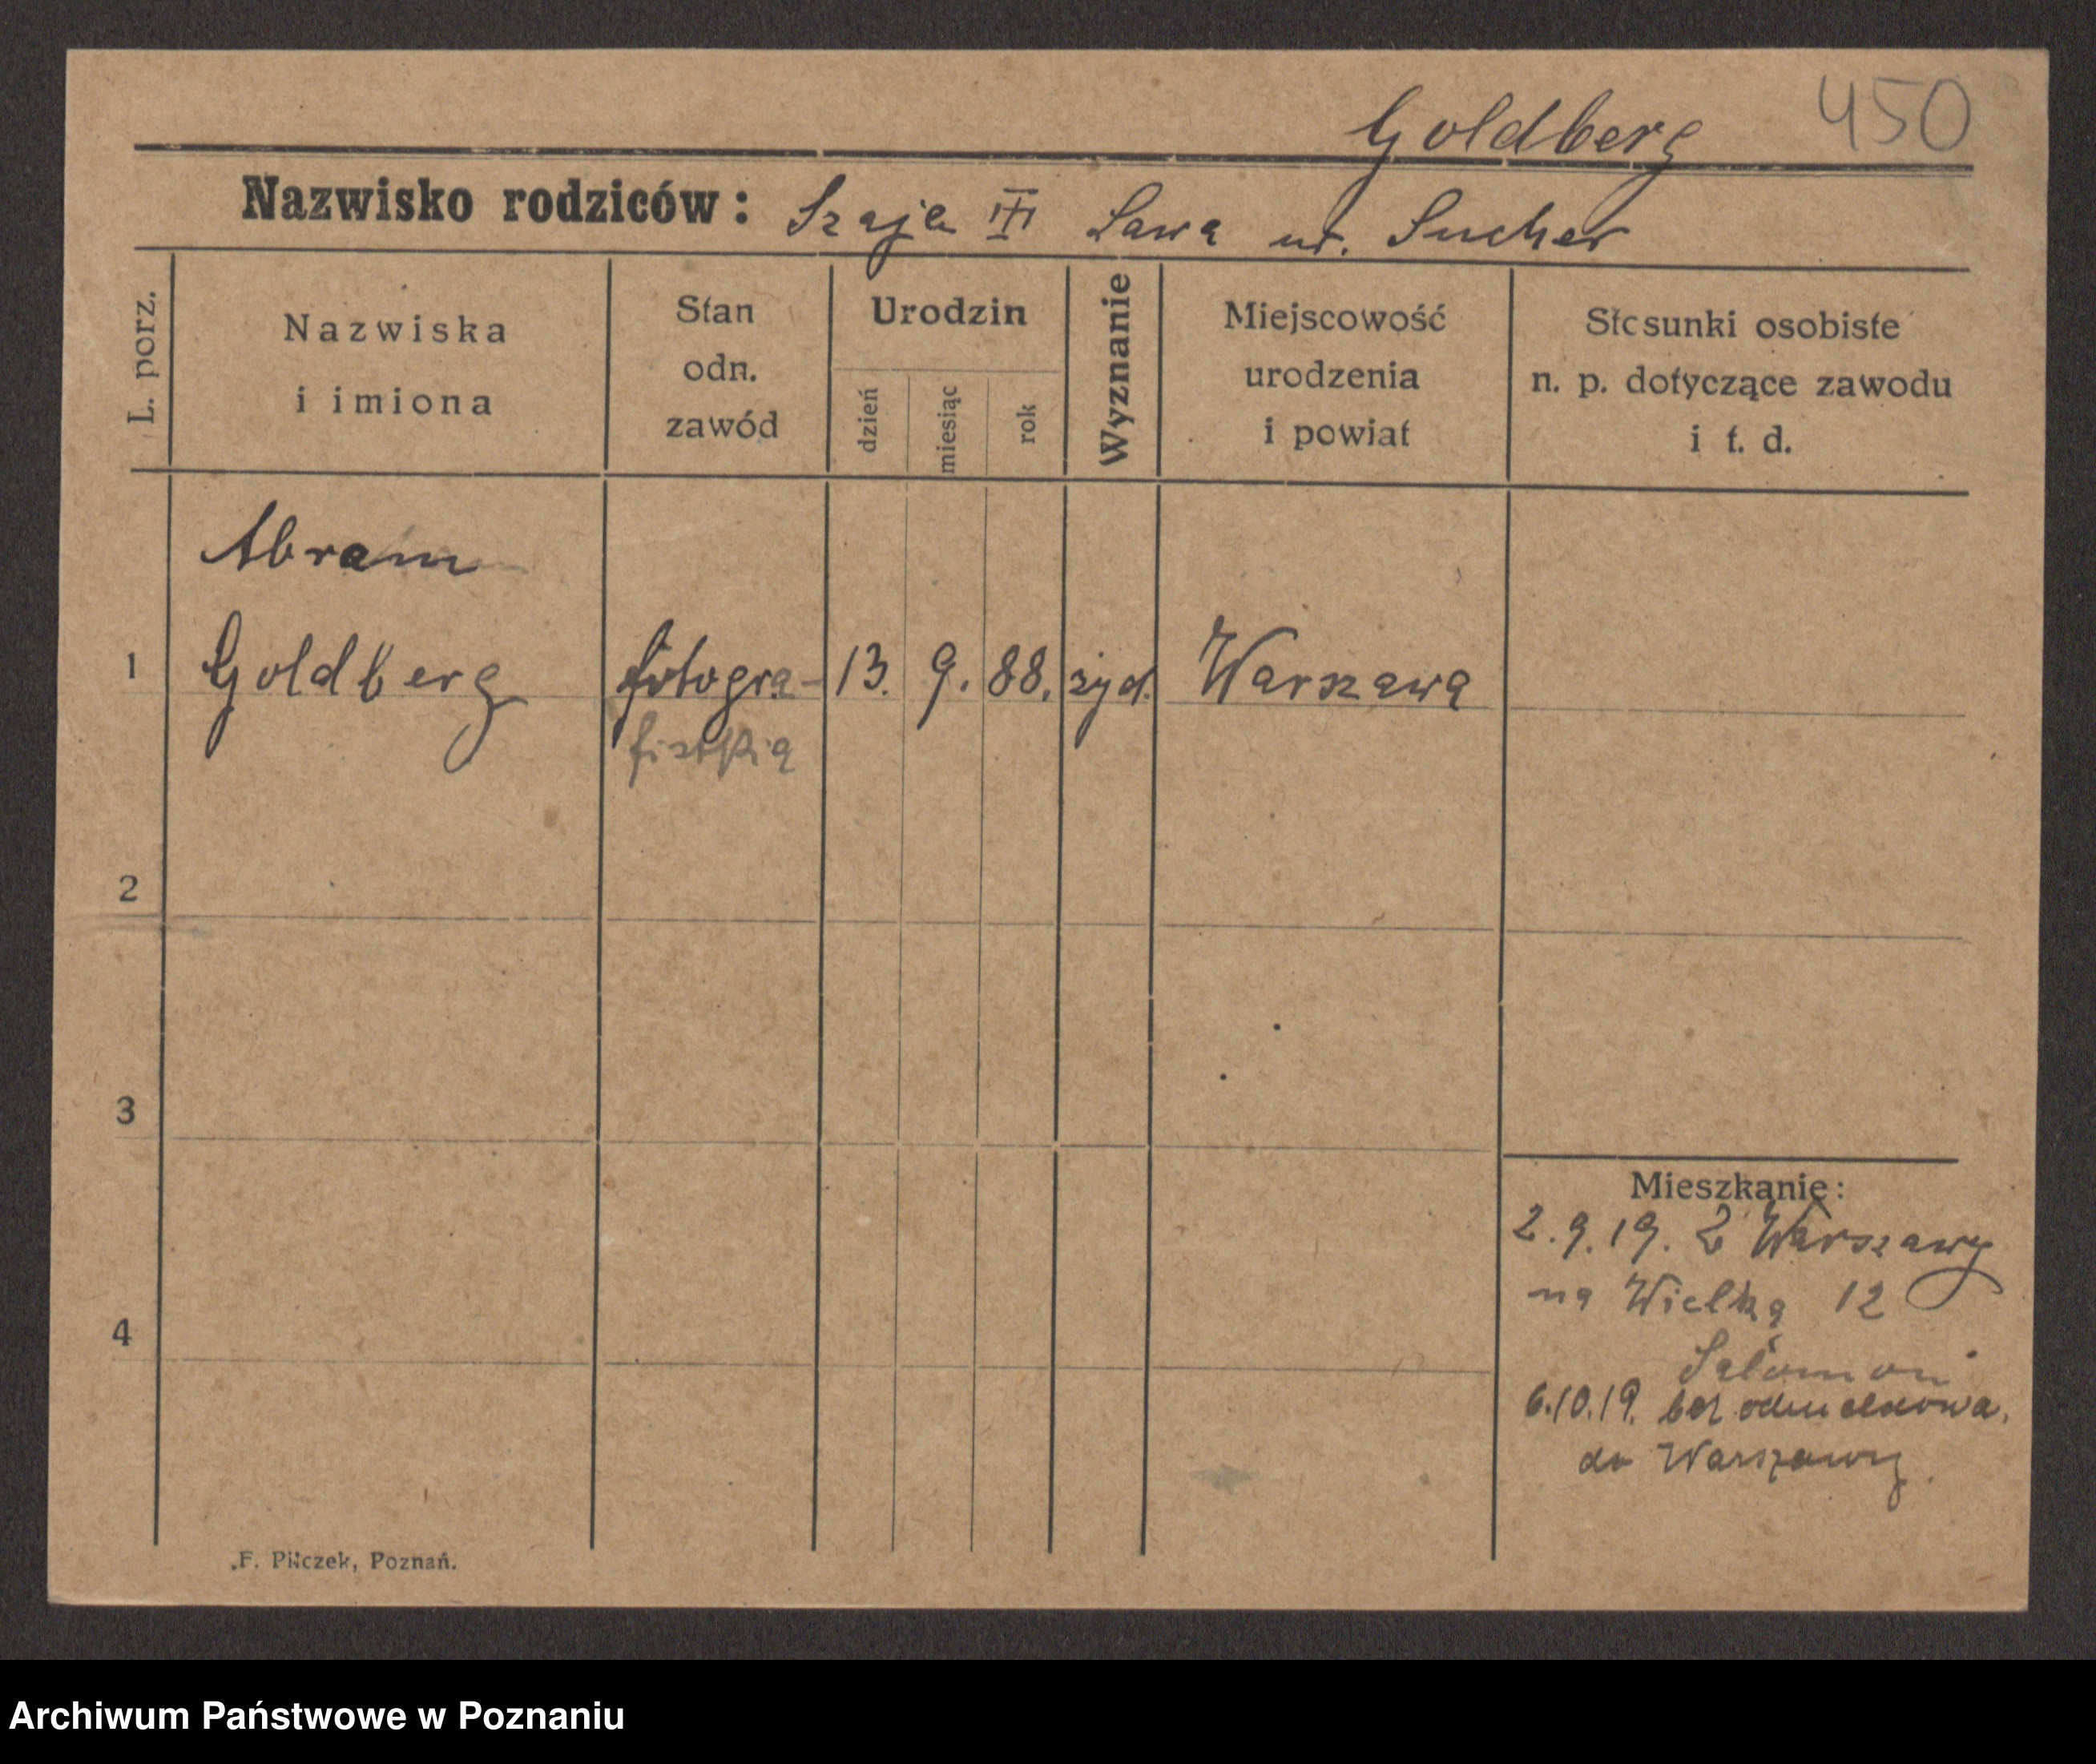 450
Goldberg
Nazwisko rodziców: Szaja III Sara ur. Sucher
L. porz.
Nazwiska
i imiona
Stan
odn.
zawód
Urodzin
dzień
miesiąc
rok
Wyznanie
Miejscowość
urodzenia
i powiat
Stosunki osobiste
n. p. dotyczące zawodu
i t. d.
Abram
1 Goldberg fotogra- 13. 9. 88. żyd. Warszawa
2
3
4
Mieszkanie:
2.9.19. Z Warszawy
na Wielką 12
Salomon
6.10.19. bez
do Warszawy
F. Pilczek, Poznań.
Archiwum Państwowe w Poznaniu